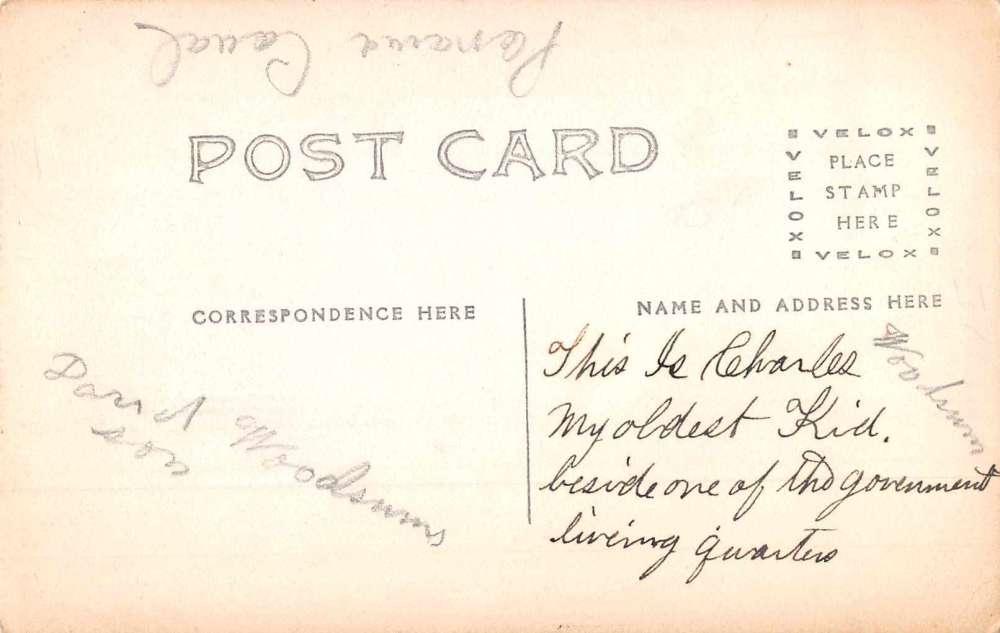 Panama Canal
POST CARD
VELOX
VELOX
VELOX
VELOX
PLACE
STAMP
HERE
CORRESPONDENCE HERE
NAME AND ADDRESS HERE
This Is Charles
My oldest Kid.
beside one of the government
liveing quarters